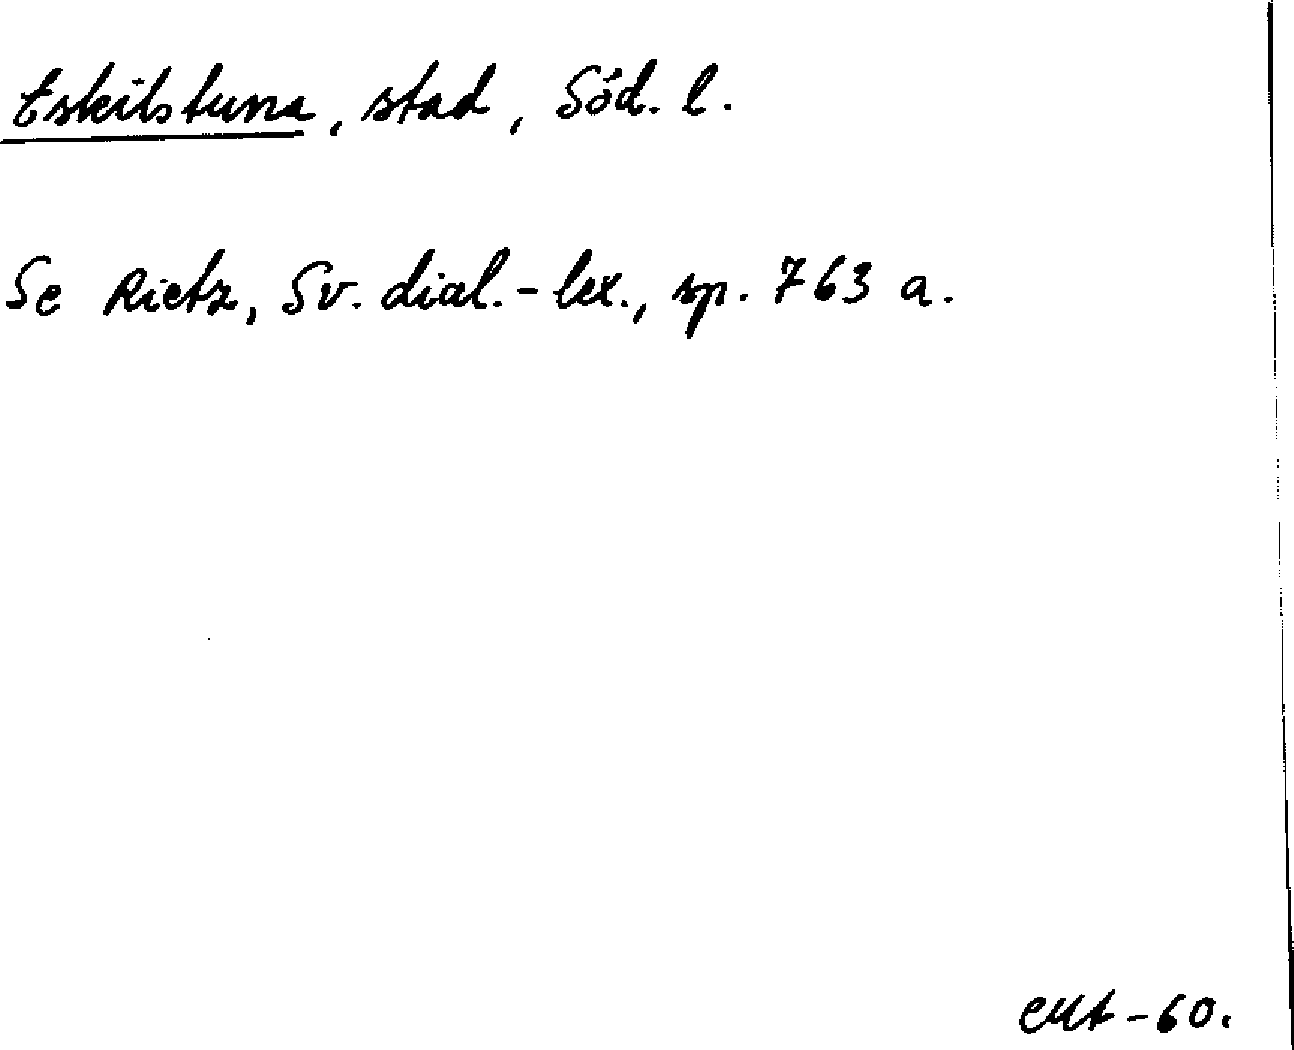 Eskilstuna, stad, Söd. l.
Se Rietz, Sv. dial.-lex., sp. 763 a.
-60.